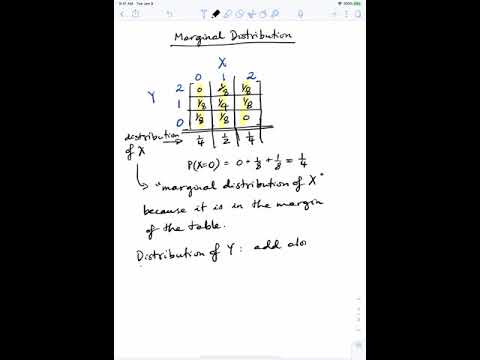 9:41 AM Tue Jan 9
Marginal Distribution
X
0 1 2
Y 2 0 1/8 1/8
1 1/8 1/4 1/8
0 1/8 1/8 0
distribution of X → 1/4 1/2 1/4
P(X=0) = 0 + 1/8 + 1/8 = 1/4
"marginal distribution of X"
because it is in the margin
of the table.
Distribution of Y: add alo